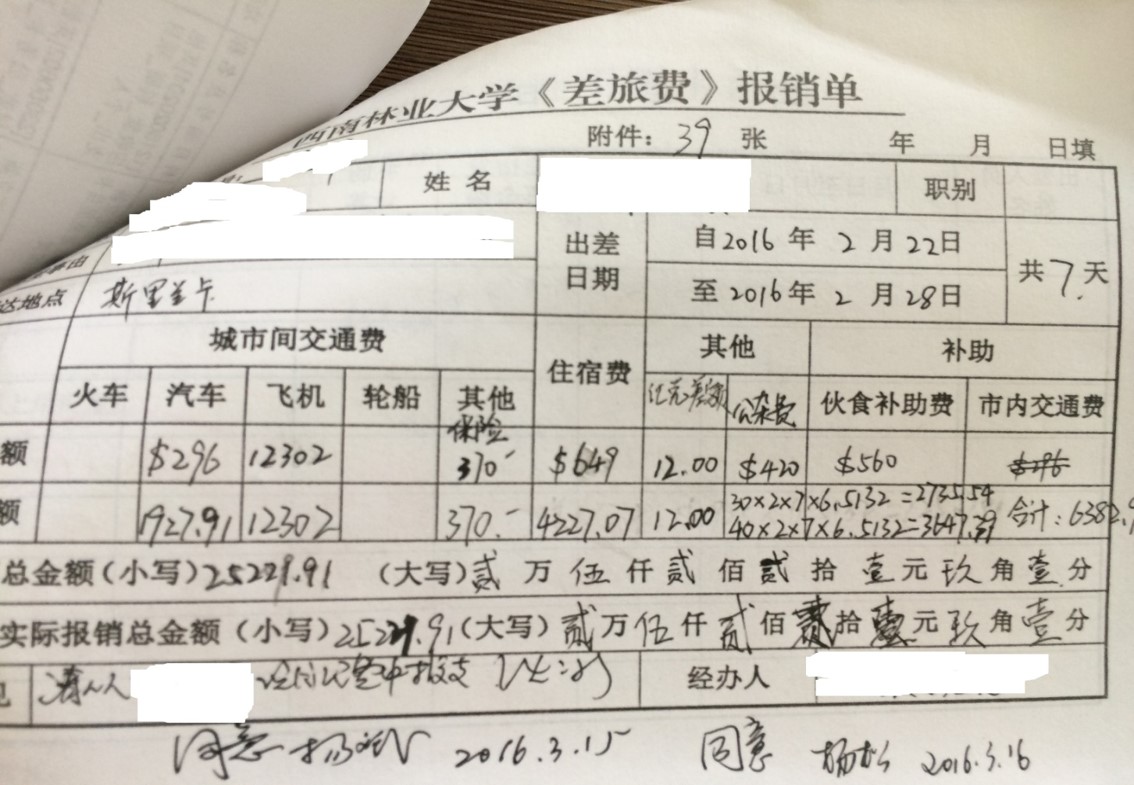 西南林业大学《差旅费》报销单
附件: 39 张 年 月 日填
姓名 职别
出差日期 自2016年 2月 22日
至2016年 2月 28日
共7天
达地点 斯里兰卡
城市间交通费 住宿费 其他 补助
火车 汽车 飞机 轮船 其他 保险 公杂费 伙食补助费 市内交通费
额 $296 12302 370.- $649 12.00 $420 $560 $296
额 1927.91 12302 370.- 4227.07 12.00 30×2×7×6.5132=2735.54
40×2×7×6.5132=3647.39 合计:6382.9
总金额(小写)25221.91 (大写)贰万伍仟贰佰贰拾壹元玖角壹分
实际报销总金额(小写)25221.91(大写)贰万伍仟贰佰贰拾壹元玖角壹分
经办人
同意 2016.3.15 同意 杨松 2016.3.16